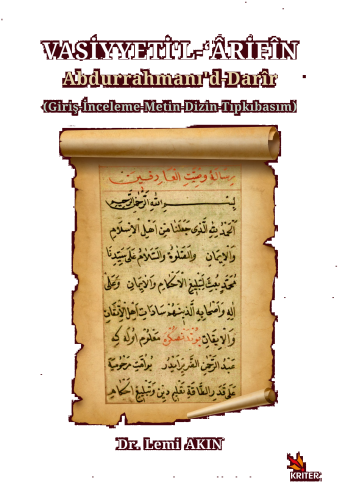 VASİYYETİ'L-'ÂRİFÎN
Abdurrahmanı'd-Darîr
(Giriş-İnceleme-Metin-Dizin-Tıpkıbasım)
رسالۀ وصيّت العارفين
بسم الله الرحمن الرحيم
الحمد لله الذى جعلنا من اهل الاسلام
والايمان والصّلوة والسّلام على سيّدنا
محمّد بعث لتبليغ الاحكام والايمان وعلى
اله واصحابه الذين هم سادات اهل الاتقان
والايقان معلوم اوله كه
عبد الرحمن الضرير ايدر
على قدر الطاقة وتبليغ احكام
Dr. Lemi AKIN
KRİTER